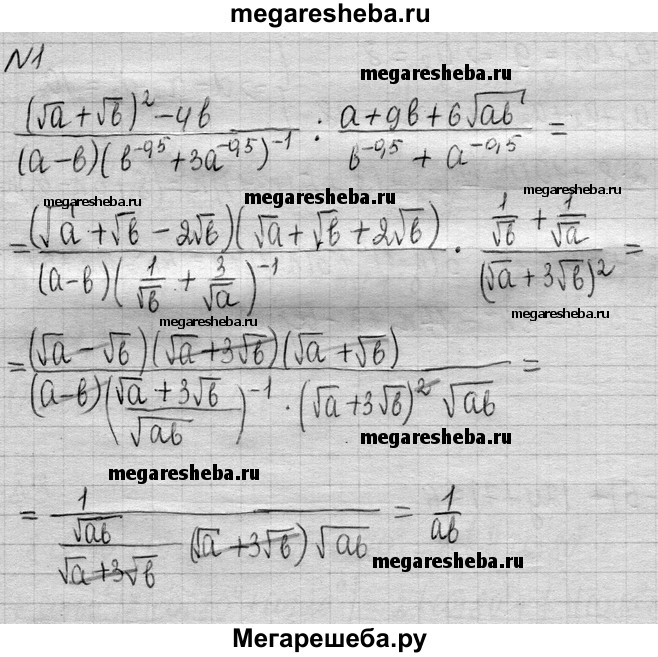 megaresheba.ru
N1
megaresheba.ru
((√a + √b)² - 4b) / ((a-b)(b^-0,5 + 3a^-0,5)^-1) : (a + 9b + 6√ab) / (b^-0,5 + a^-0,5) =
megaresheba.ru megaresheba.ru megaresheba.ru
= ((√a + √b - 2√b)(√a + √b + 2√b)) / ((a-b)(1/√b + 3/√a)^-1) · (1/√b + 1/√a) / (√a + 3√b)² =
megaresheba.ru megaresheba.ru megaresheba.ru
= ((√a - √b)(√a + 3√b)(√a + √b)) / ((a-b)((√a + 3√b)/√ab)^-1 · (√a + 3√b)² √ab) =
megaresheba.ru
megaresheba.ru
= 1 / (√ab/(√a + 3√b) (√a + 3√b) √ab) = 1/ab
megaresheba.ru
Мегарешеба.ру